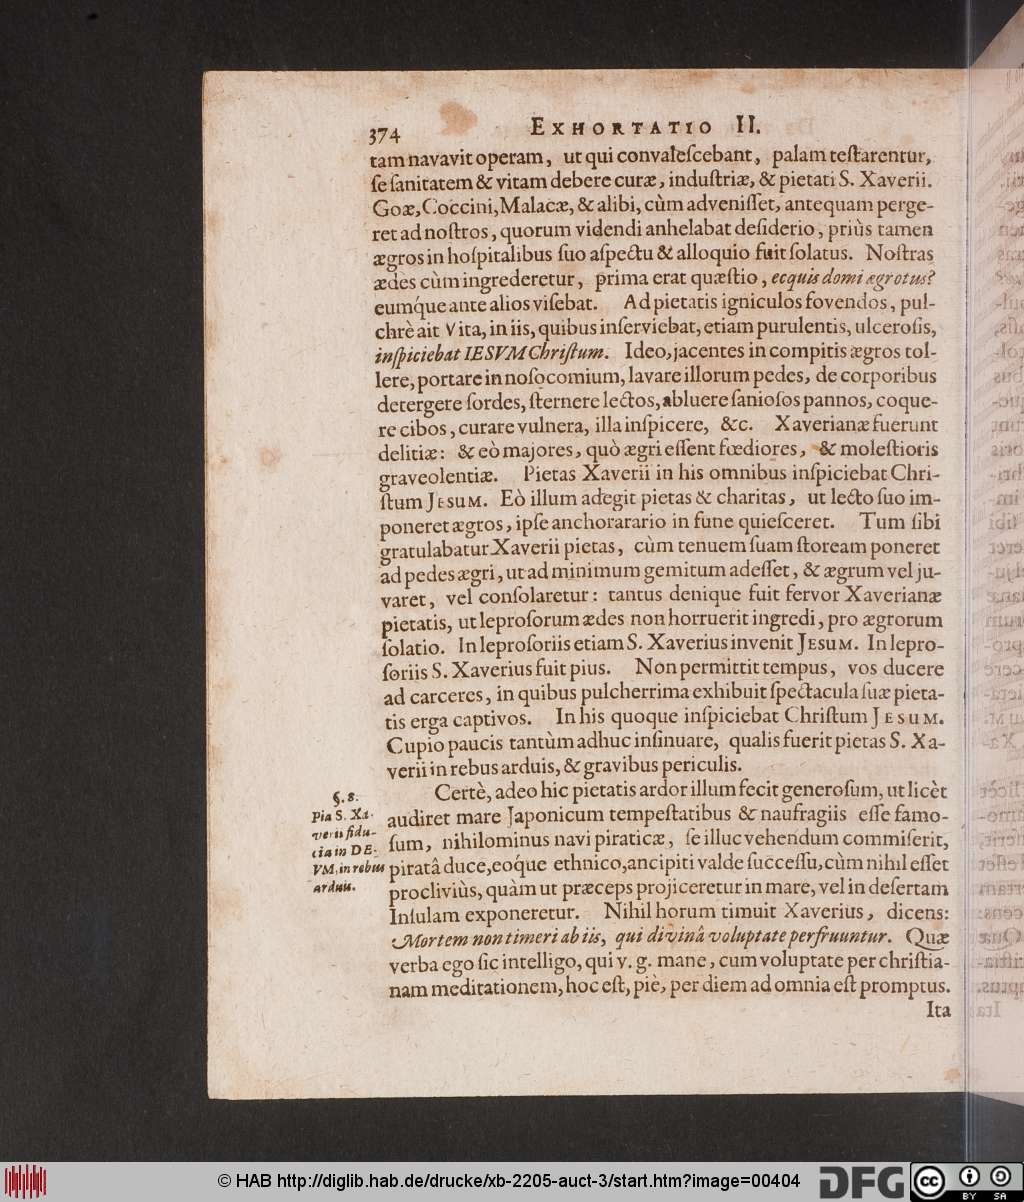 374 EXHORTATIO II.
tam navavit operam, ut qui convaleſcebant, palam teſtarentur,
ſe ſanitatem & vitam debere curæ, induſtriæ, & pietati S. Xaverii.
Goæ, Coccini, Malacæ, & alibi, cùm adveniſſet, antequam perge-
ret ad noſtros, quorum videndi anhelabat deſiderio, priùs tamen
ægros in hoſpitalibus ſuo aſpectu & alloquio fuit ſolatus. Noſtras
ædes cùm ingrederetur, prima erat quæſtio, ecquis domi ægrotus?
eumq́ue ante alios viſebat. Ad pietatis igniculos fovendos, pul-
chrè ait Vita, in iis, quibus inſerviebat, etiam purulentis, ulceroſis,
inſpiciebat IESVM Chriſtum. Ideo, jacentes in compitis ægros tol-
lere, portare in noſocomium, lavare illorum pedes, de corporibus
detergere ſordes, ſternere lectos, abluere ſanioſos pannos, coque-
re cibos, curare vulnera, illa inſpicere, &c. Xaverianæ fuerunt
delitiæ: & eò majores, quò ægri eſſent fœdiores, & moleſtioris
graveolentiæ. Pietas Xaverii in his omnibus inſpiciebat Chri-
ſtum JESUM. Eò illum adegit pietas & charitas, ut lecto ſuo im-
poneret ægros, ipſe anchorarario in fune quieſceret. Tum ſibi
gratulabatur Xaverii pietas, cùm tenuem ſuam ſtoream poneret
ad pedes ægri, ut ad minimum gemitum adeſſet, & ægrum vel ju-
varet, vel conſolaretur: tantus denique fuit fervor Xaverianæ
pietatis, ut leproſorum ædes non horruerit ingredi, pro ægrorum
ſolatio. In leproſoriis etiam S. Xaverius invenit JESUM. In lepro-
ſoriis S. Xaverius fuit pius. Non permittit tempus, vos ducere
ad carceres, in quibus pulcherrima exhibuit ſpectacula ſuæ pieta-
tis erga captivos. In his quoque inſpiciebat Chriſtum JESUM.
Cupio paucis tantùm adhuc inſinuare, qualis fuerit pietas S. Xa-
verii in rebus arduis, & gravibus periculis.
§. 8.
Pia S. Xa-
verii fidu-
cia in DE-
VM, in rebus
arduis.
Certè, adeo hic pietatis ardor illum fecit generoſum, ut licèt
audiret mare Japonicum tempeſtatibus & naufragiis eſſe famo-
ſum, nihilominus navi piraticæ, ſe illuc vehendum commiſerit,
piratâ duce, eoq́ue ethnico, ancipiti valde ſucceſſu, cùm nihil eſſet
procliviùs, quàm ut præceps projiceretur in mare, vel in deſertam
Inſulam exponeretur. Nihil horum timuit Xaverius, dicens:
Mortem non timeri ab iis, qui divinâ voluptate perfruuntur. Quæ
verba ego ſic intelligo, qui v. g. mane, cum voluptate per chriſtia-
nam meditationem, hoc eſt, piè, per diem ad omnia eſt promptus.
Ita
© HAB http://diglib.hab.de/drucke/xb-2205-auct-3/start.htm?image=00404
DFG
cc BY SA